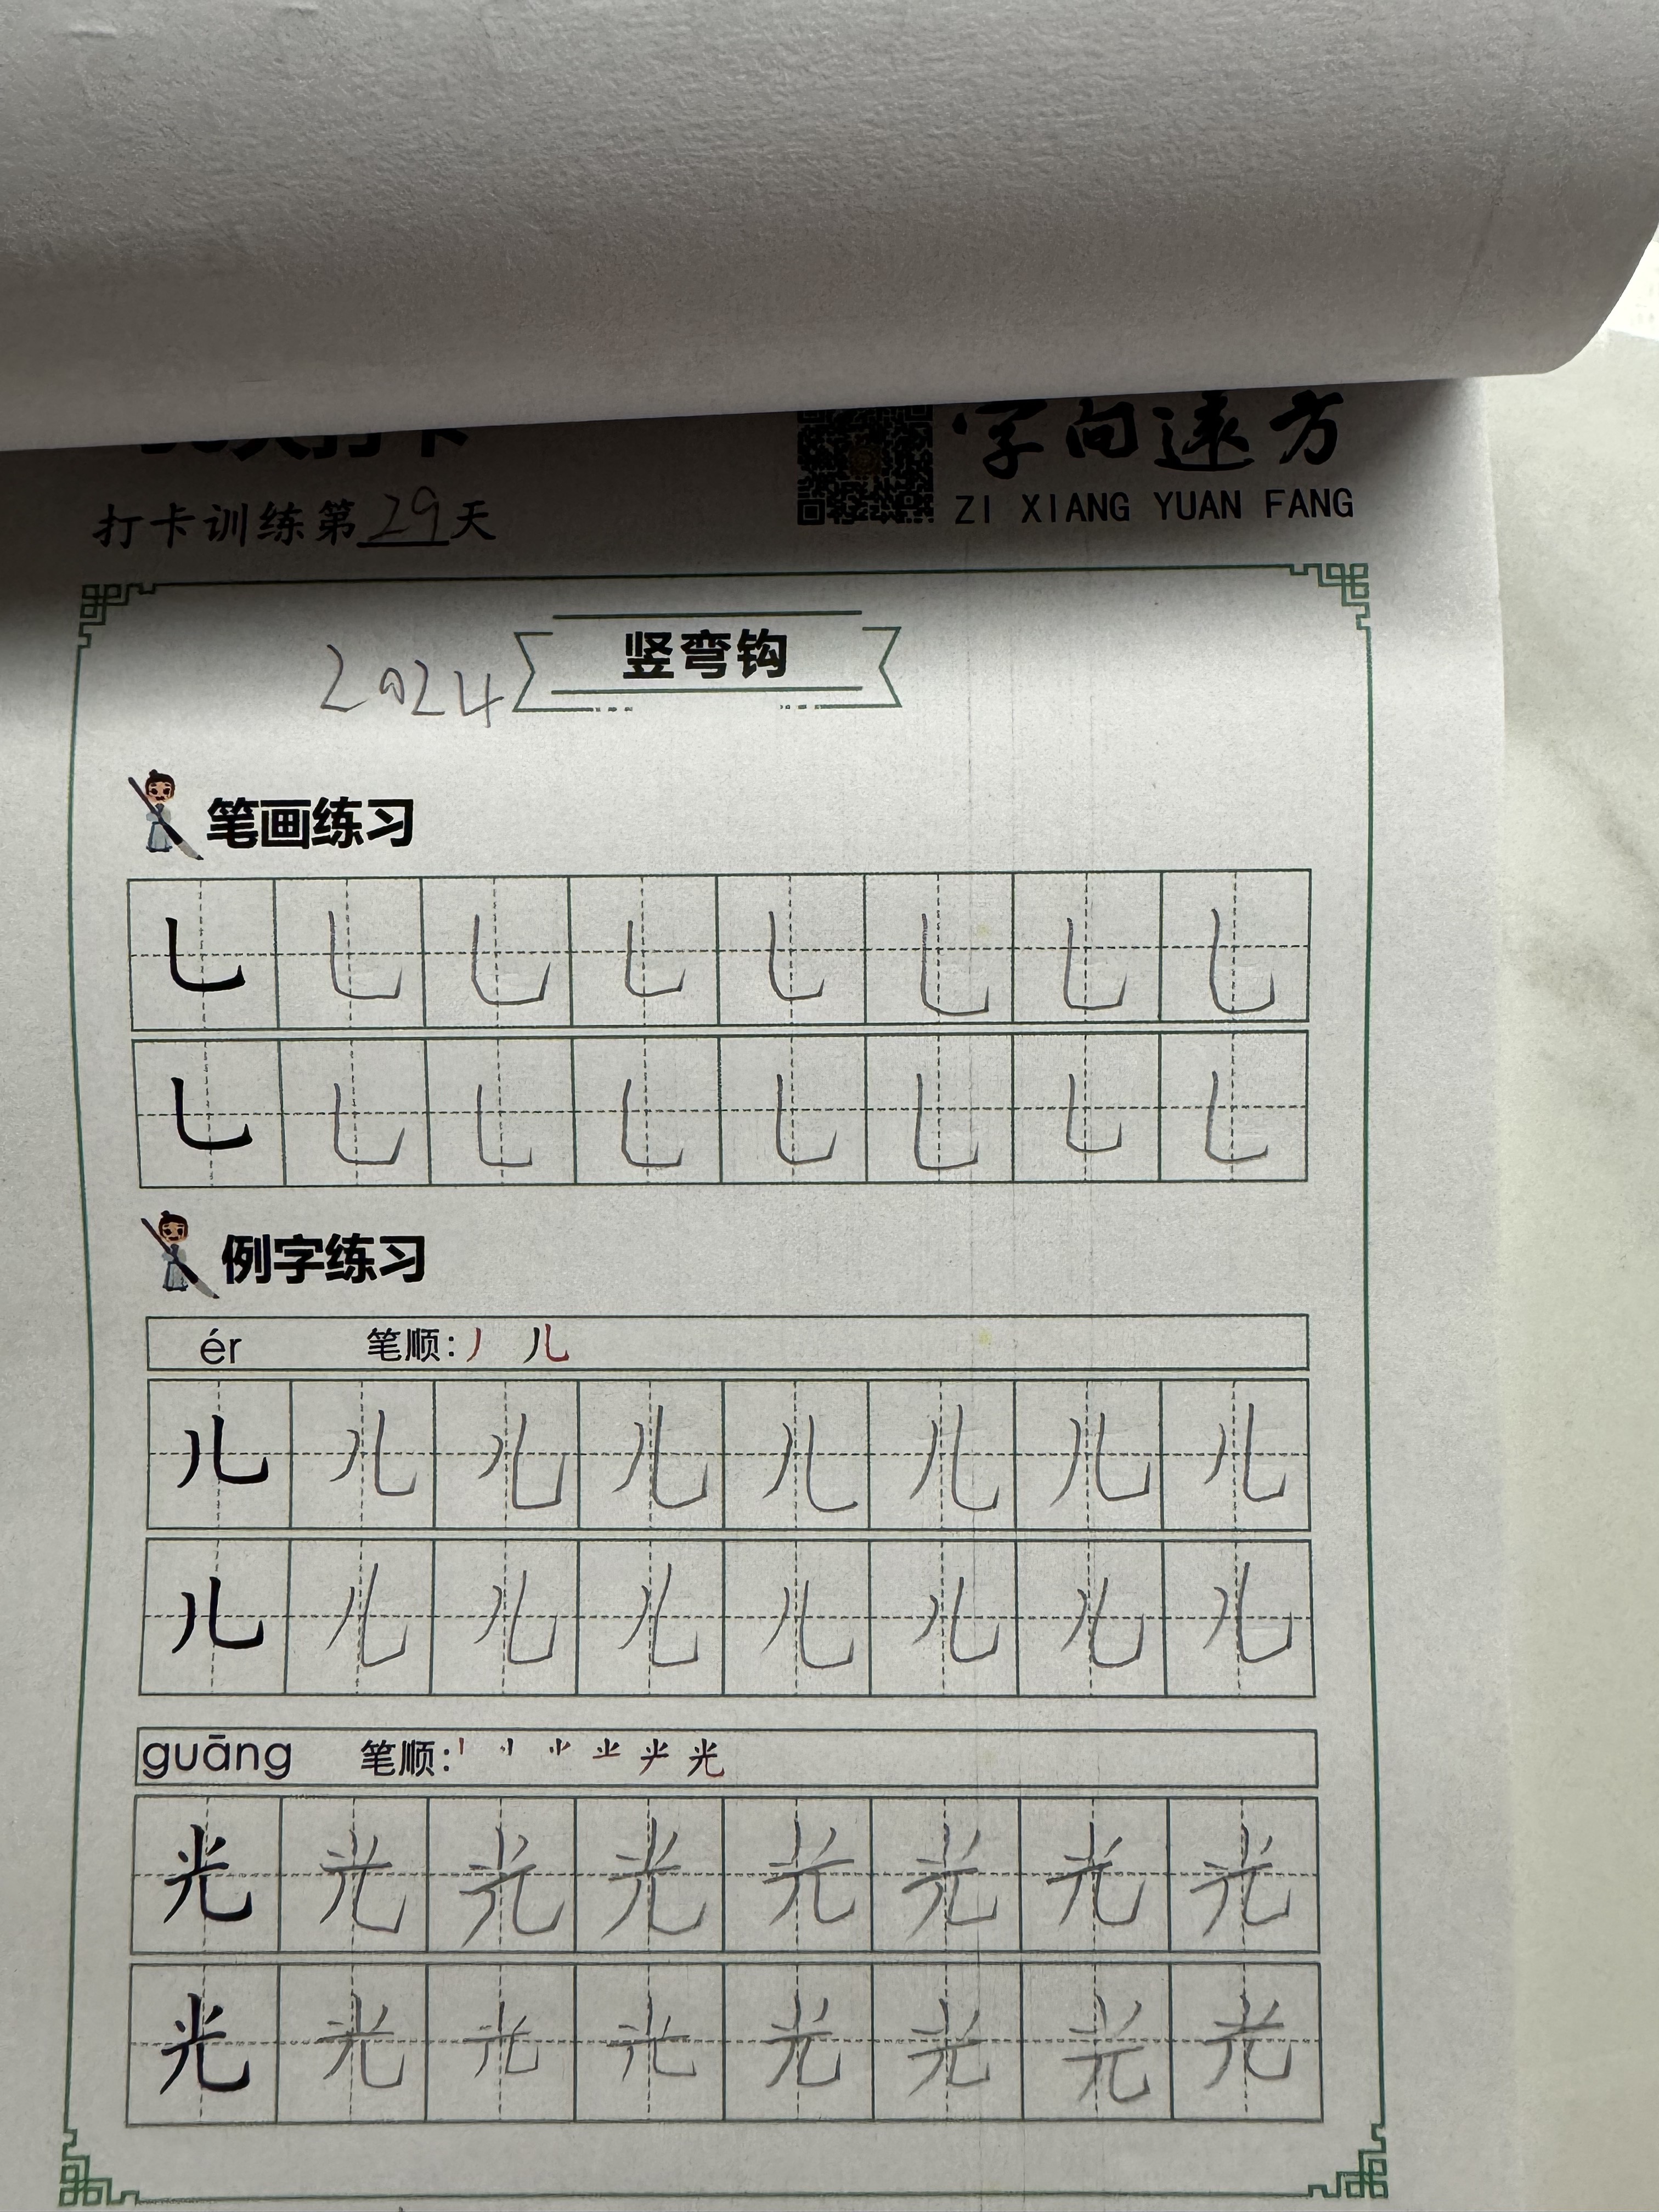 字向遠方
ZI XIANG YUAN FANG
打卡训练第29天
竖弯钩
2024
笔画练习
乚 乚 乚 乚 乚 乚 乚 乚
乚 乚 乚 乚 乚 乚 乚 乚
例字练习
ér 笔顺: 丿 儿
儿 儿 儿 儿 儿 儿 儿 儿
儿 儿 儿 儿 儿 儿 儿 儿
guāng 笔顺: 光
光 光 光 光 光 光 光 光
光 光 光 光 光 光 光 光